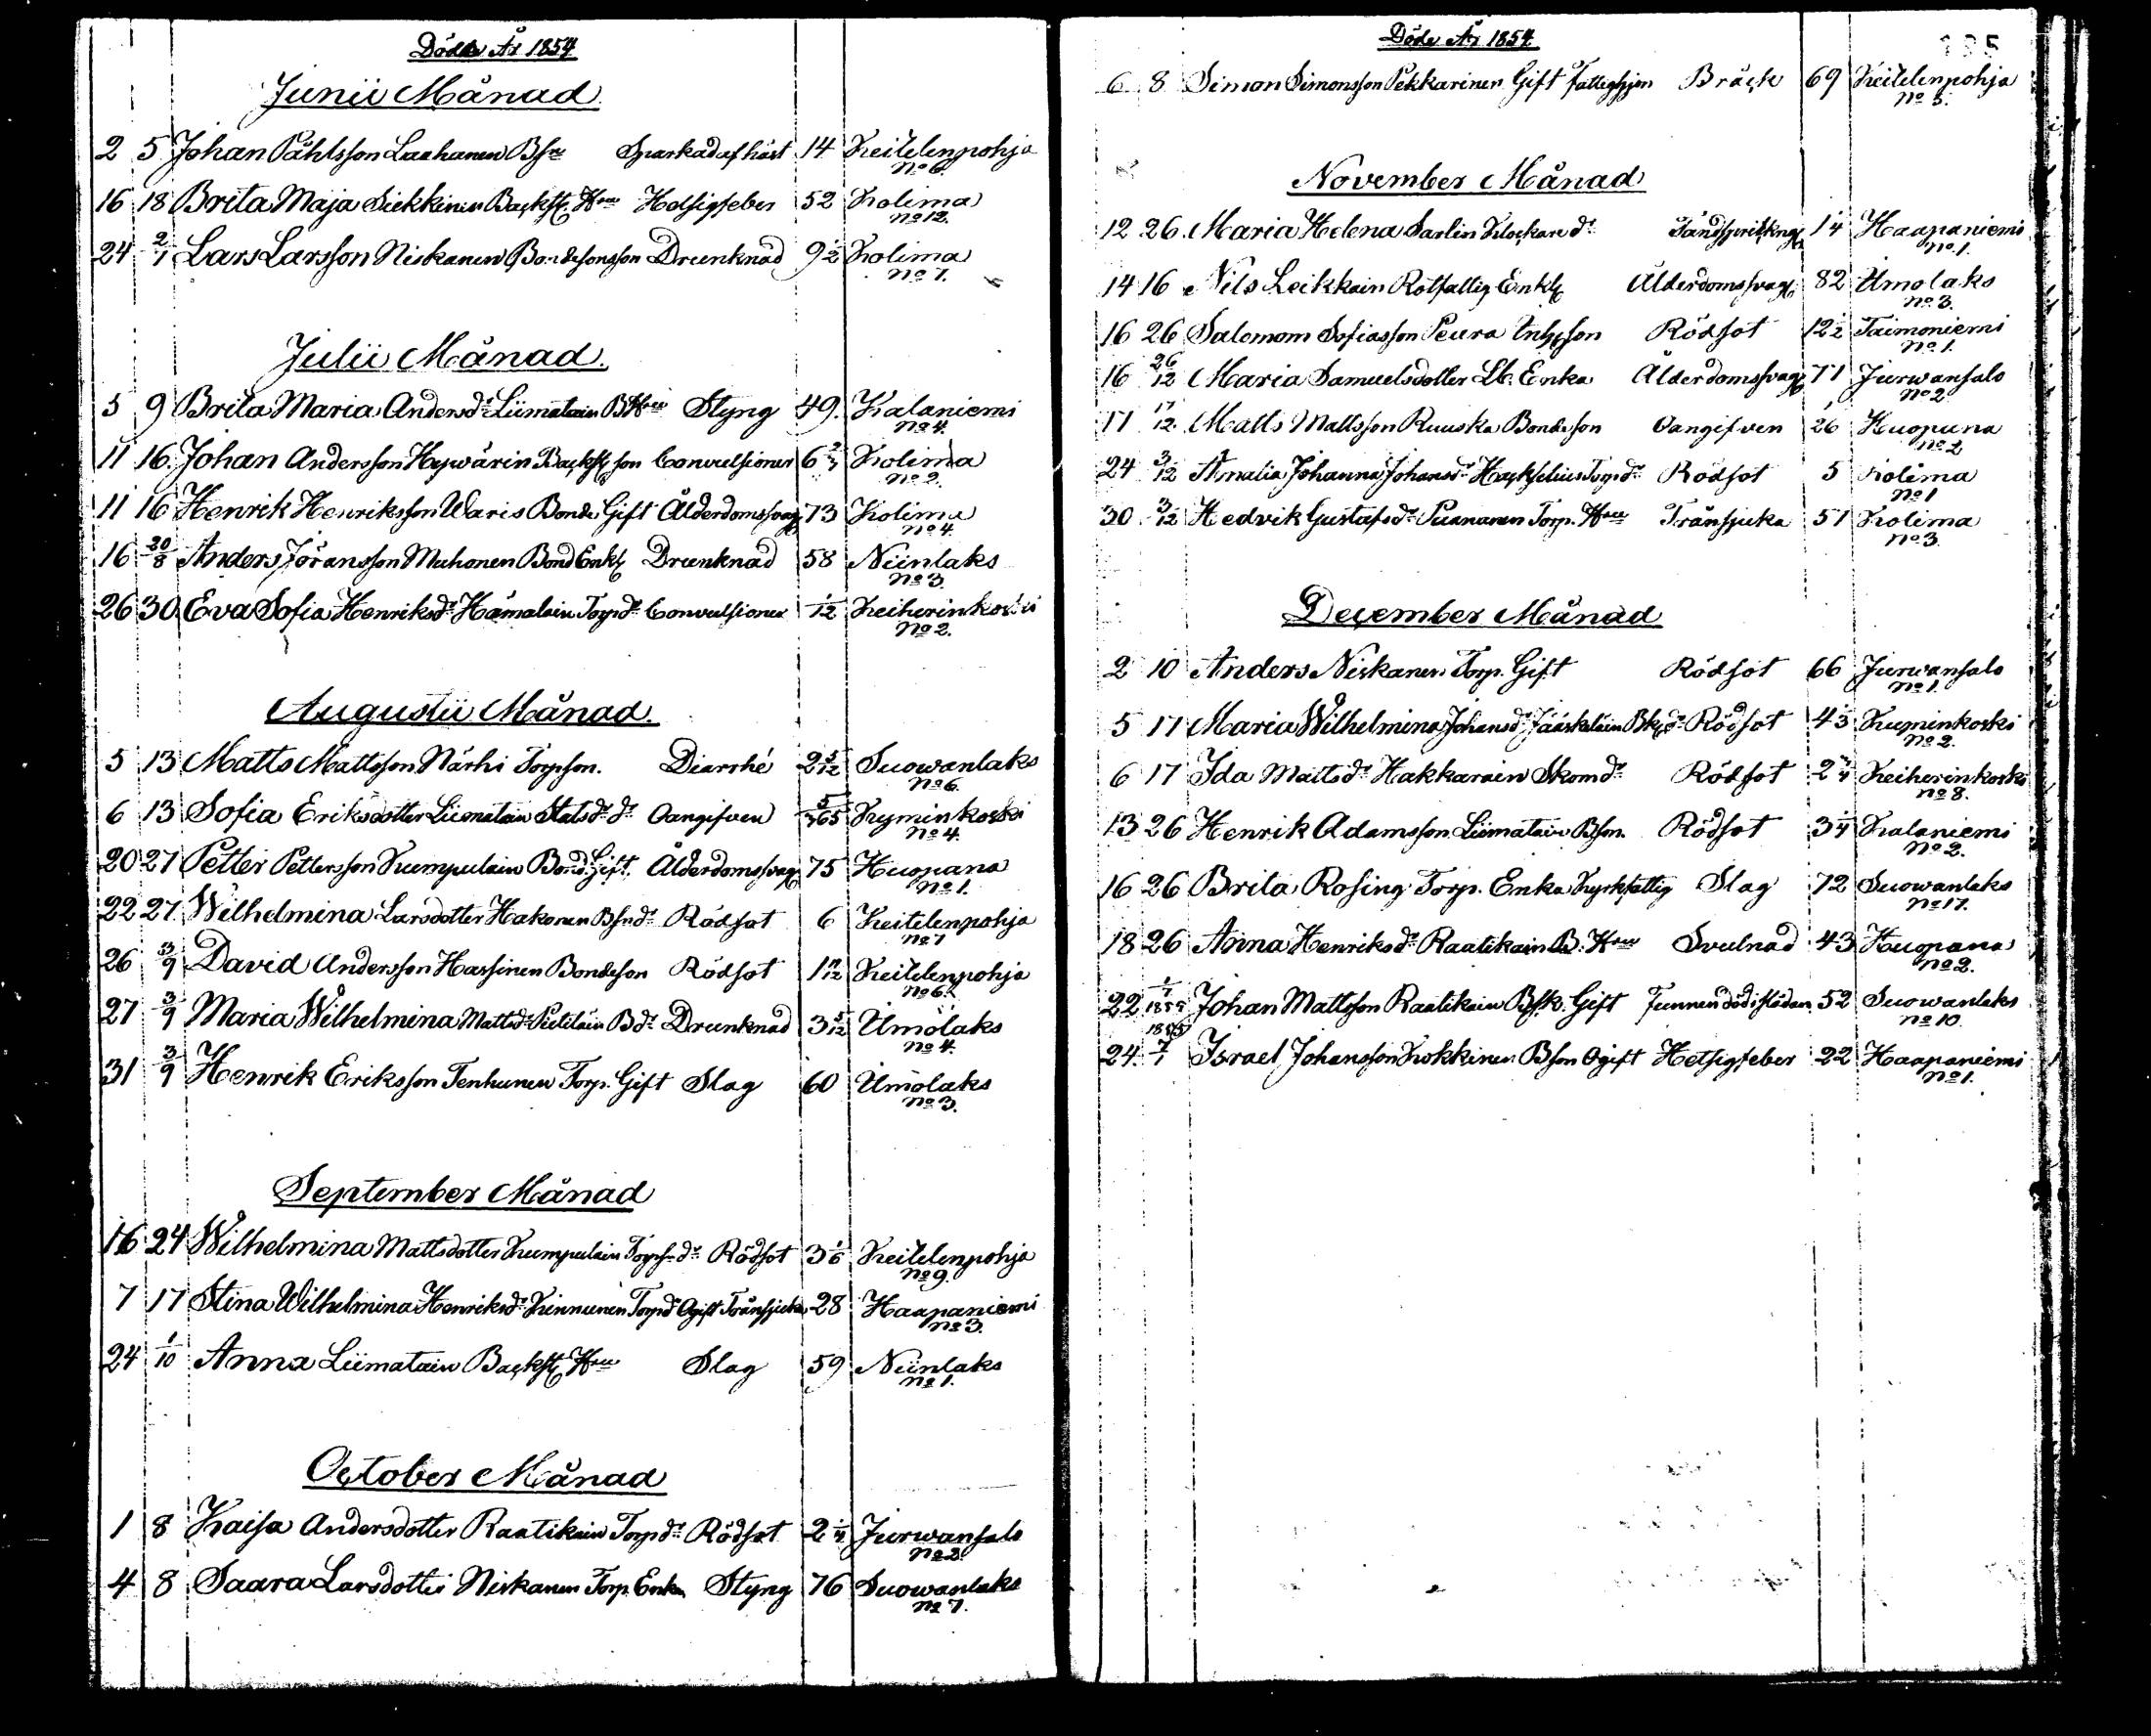 Döde År 1854
Junii Månad
2 5 Johan Påhlsson Laahanen Bsn Sparkad af häst 14 Keitelenpohja
No 6.
16 18 Brita Maja Siekkinen Backst. Hru Hetsigfeber 52 Kolima
No 12.
24 2/7 Lars Larsson Niskanen Bondesonsson Drunknad 9 1/2 Kolima
No 7.
Julii Månad.
5 9 Brita Maria Andersdr Liimatain BHru Styng 49. Kalaniemi
No 4.
11 16. Johan Andersson Hywärin Backst son Convulsioner 6 Kolima
No 2.
11 16 Henrik Henriksson Waris Bonde Gift Ålderdomssvag 73 Kolima
No 4.
16 20/8 Anders Jöransson Muhonen Bond Enkl Drunknad 58 Niinlaks
No 3.
26 30. Eva Sofia Henriksdr Hämälain Torpdr Convulsioner 1/12 Keiherinkoski
No 2.
Augustii Månad.
5 13 Matts Mattsson Närhi Torpson. Diarrhé 2 5/12 Suowanlaks
No 6.
6 13 Sofia Eriksdotter Liimatain Statsdr dr Oangifven 5/365 Kyminkoski
No 4.
20 27 Petter Pettersson Kumpulain Bond. Gift. Ålderdomssvag 75 Huopana
No 1.
22 27. Wilhelmina Larsdotter Hakonen Bsndr Rödsot 6 Keitelenpohja
No 7
26 3/9 David Andersson Hassinen Bondeson Rödsot 1 11/12 Keitelenpohja
No 6.
27 3/9 Maria Wilhelmina Mattsdr Pietiläin Bdr Drunknad 3 5/12 Umolaks
No 4.
31 3/9 Henrik Eriksson Tenhunen Torp. Gift Slag 60 Umolaks
No 3.
September Månad
16 24 Wilhelmina Mattsdotter Kumpulain Torpsdr Rödsot 3 1/6 Keitelenpohja
No 9.
7 17 Stina Wilhelmina Henriksdr Kinnunen Torpdr Ogift Tränsjuka 28 Haapaniemi
No 3.
24 1/10 Anna Liimatain Backst Hru Slag 59 Niinlaks
No 1.
October Månad
1 8 Kaisa Andersdotter Raatikain Torpdr Rödsot 2 1/4 Jurwansalo
No 2.
4 8 Saara Larsdotter Niskanen Torp. Enka Styng 76 Suowanlaks
No 7.
Döde År 1854.
6 8 Simon Simonsson Pekkarinen Gift Fattighjon Bräck 69 Keitelenpohja
No 5.
November Månad
12 26. Maria Helena Sarlin Klockaredr 1/4 Haapaniemi
No 1.
14 16 Nils Leikkain Rotfattig Enkl Ålderdomssvag 82 Umolaks
No 3.
16 26 Salomom Sofiasson Peura Inhson Rödsot 12 1/2 Taimoniemi
No 1.
16 26/12 Maria Samuelsdotter Lb. Enka Ålderdomssvag 77 Jurwansalo
No 2.
17 17/12 Matts Mattsson Ruuska Bondeson Oangifven Huopana
No 2
24 3/12 Amalia Johanna Johansdr Hackselius Torpdr Rödsot 5 Kolima
No 1
30 3/12 Hedvik Gustafsdr Puranen Torp. Hru Tränsjuka 57 Kolima
No 3.
December Månad
2 10 Anders Niskanen Torp. Gift Rödsot 66 Jurwansalo
No 1.
5 17 Maria Wilhelmina Johansdr Jääskeläin Bkdr Rödsot 4 1/3 Kyminkoski
No 2.
6 17 Ida Mattsdr Hakkarain Skomdr Rödsot 2 3/4 Keiherinkoski
No 8.
13 26 Henrik Adamsson Liimatain Bson. Rödsot 3 1/4 Kalaniemi
No 2.
16 26 Brita Rosing Torp. Enka Kyrkfattig Slag 72 Suowanlaks
No 17.
18 26 Anna Henriksdr Raatikain B. Hru Svulnad 43 Huopana
No 2.
22 1/1 1855 Johan Mattsson Raatikain Bfsk. Gift Funnen död i flådan 52 Suowanlaks
No 10.
24. 7/1 1855 Israel Johansson Kokkinen Bson Ogift Hetsigfeber 22 Haapaniemi
No 1.